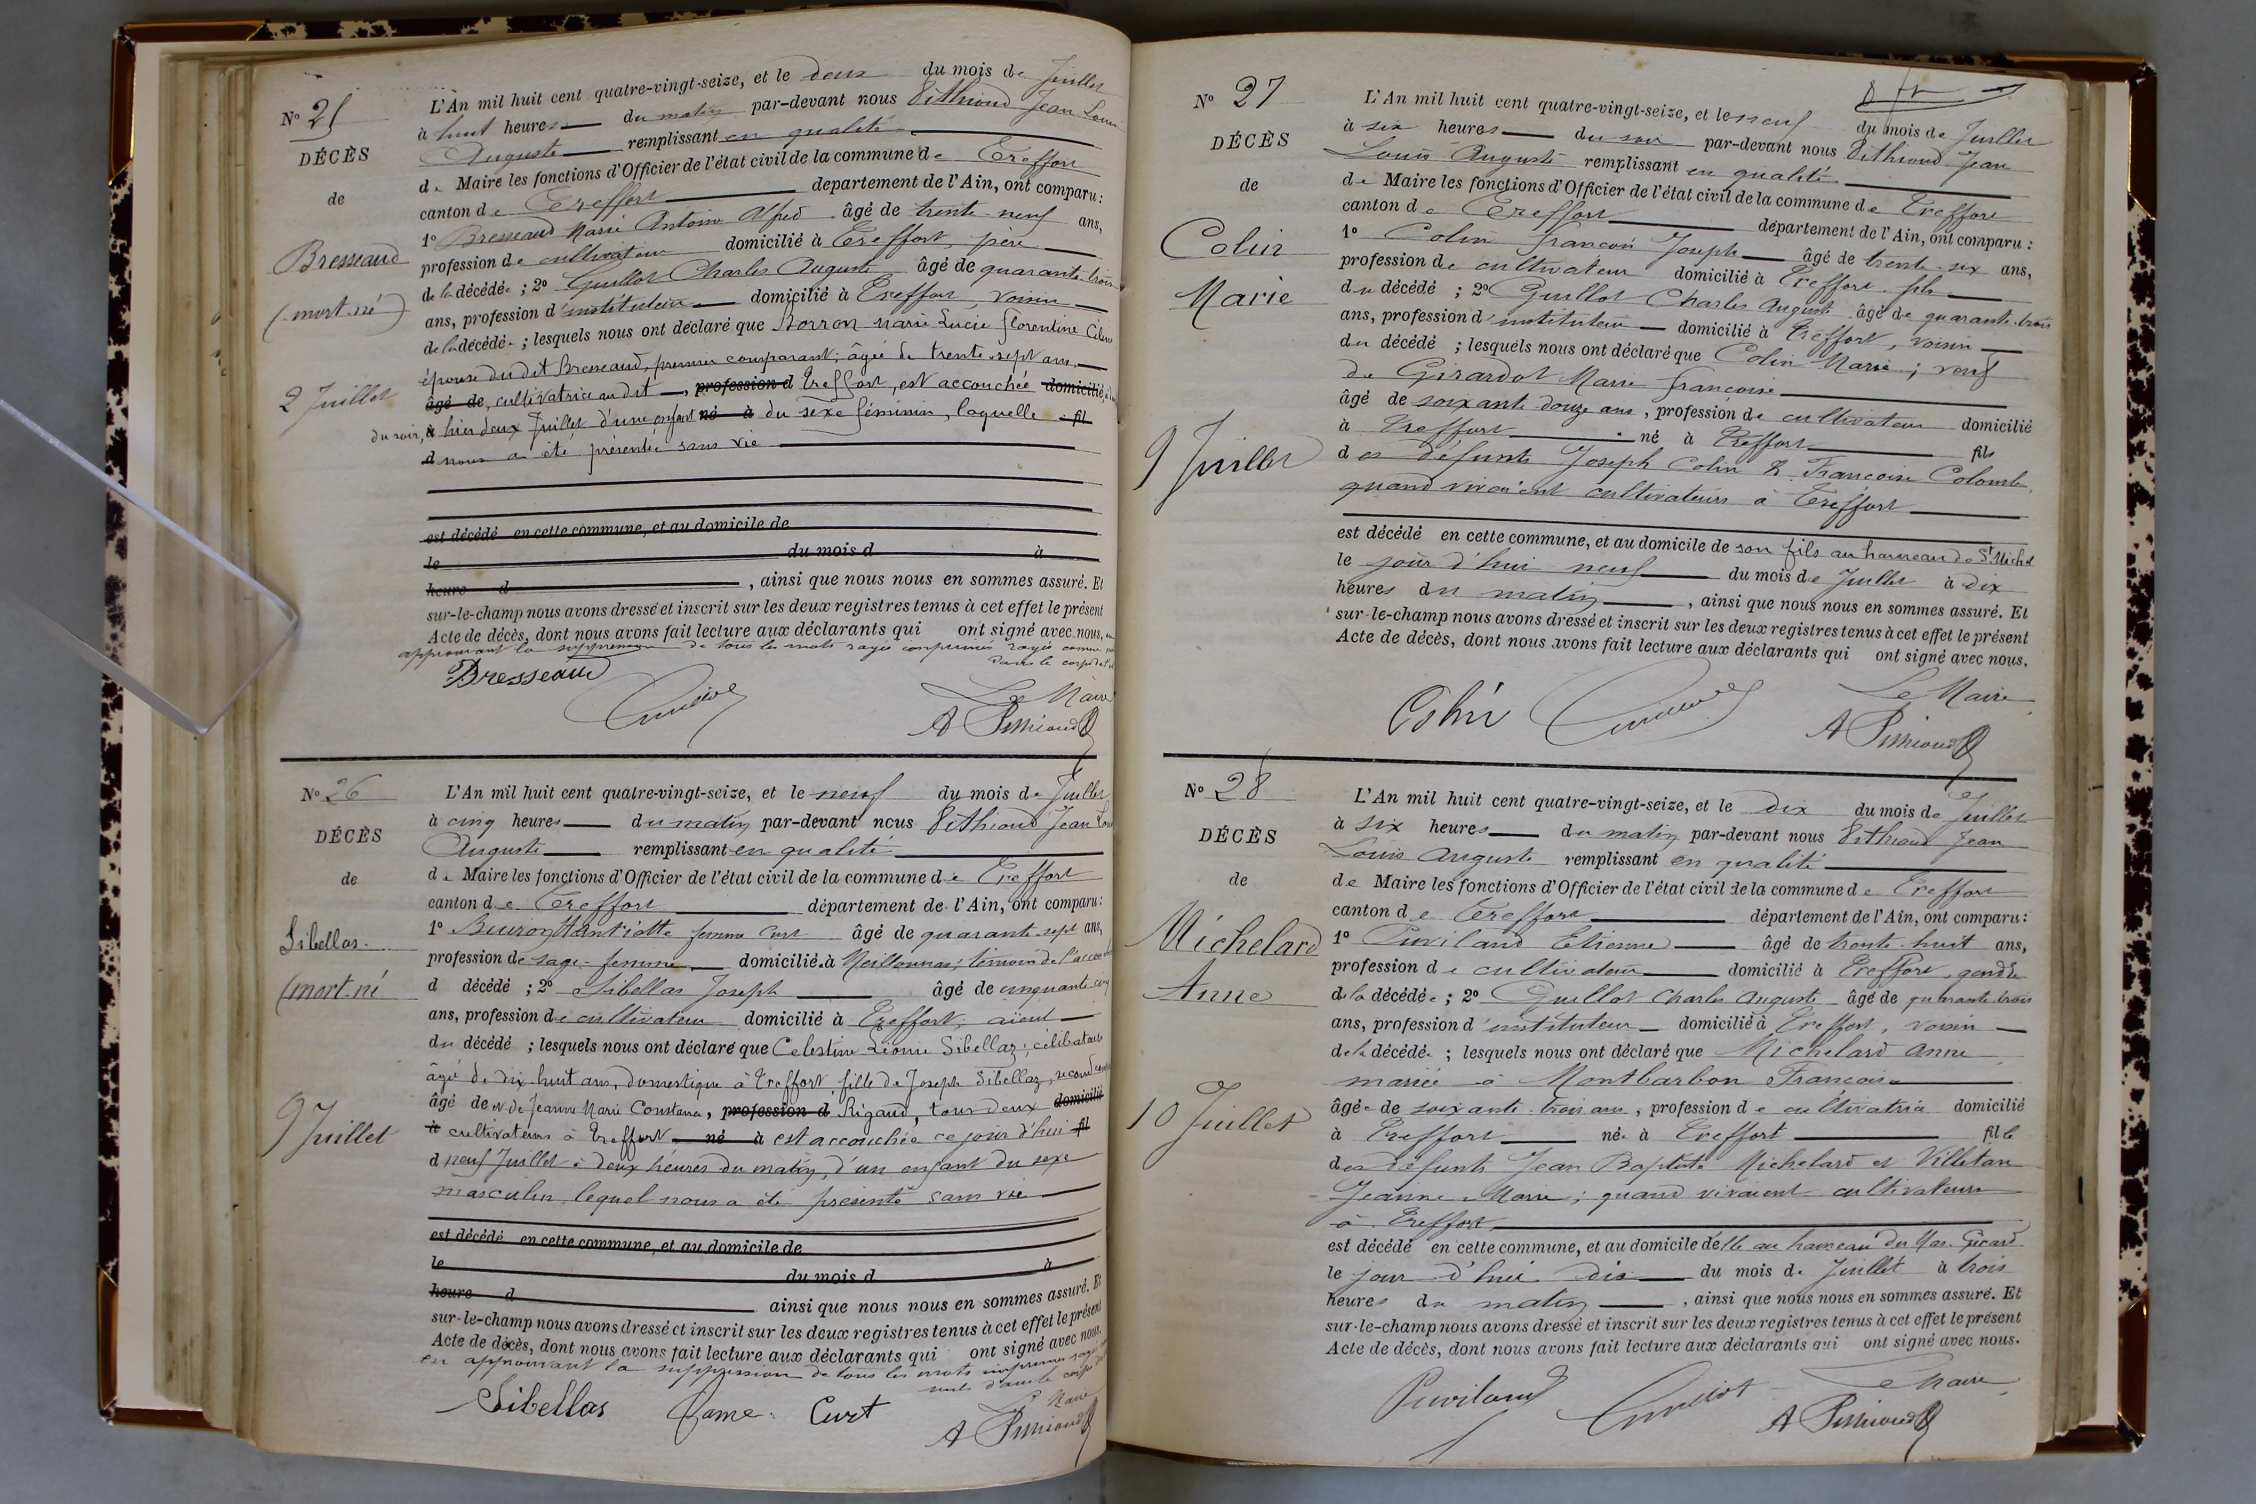 N° 25
DÉCÈS
de
Bresseaud
(mort-né)
2 Juillet
L'An mil huit cent quatre-vingt-seize, et le deux du mois de Juillet
à huit heures du matin par-devant nous Pithioud Jean Louis
Auguste remplissant en qualité
de Maire les fonctions d'Officier de l'état civil de la commune de Treffort
canton de Treffort département de l'Ain, ont comparu:
1° Bresseaud Marie Antoine Alfred âgé de trente-neuf ans,
profession de cultivateur domicilié à Treffort, père
de la décédée; 2° Guillot Charles Auguste âgé de quarante-trois
ans, profession d'instituteur domicilié à Treffort, voisin
de la décédée; lesquels nous ont déclaré que Borron Marie Lucie Florentine
épouse du dit Bresseaud, premier comparant; âgée de trente-sept ans,
âgé de, cultivatrice au dit, profession d Treffort, est accouchée domicilié
du soir, à hier deux Juillet d'une enfant né à du sexe féminin, laquelle fil
d nous a été présentée sans vie
est décédé en cette commune, et au domicile de
le du mois d à
heure d, ainsi que nous nous en sommes assuré. Et
sur-le-champ nous avons dressé et inscrit sur les deux registres tenus à cet effet le présent
Acte de décès, dont nous avons fait lecture aux déclarants qui ont signé avec nous, en
approuvant la suppression de tous les mots rayés imprimés rayés comme
dans le corps de
Bresseaud Guillot Le Maire
A Pithioud
N° 26
DÉCÈS
de
Sibellas
(mort-né
9 Juillet
L'An mil huit cent quatre-vingt-seize, et le neuf du mois de Juillet
à cinq heures du matin par-devant nous Pithioud Jean Louis
Auguste remplissant en qualité
de Maire les fonctions d'Officier de l'état civil de la commune de Treffort
canton de Treffort département de l'Ain, ont comparu:
1° Buiron Hantriette femme Curt âgé de quarante-sept ans,
profession de sage-femme domicilié à Meillonnas; témoin de l'accouchement
d décédé; 2° Sibellas Joseph âgé de cinquante-cinq
ans, profession de cultivateur domicilié à Treffort; aïeul
du décédé; lesquels nous ont déclaré que Celestine Léonie Sibellaz; célibataire
âgée de dix huit ans, domestique à Treffort fille de Joseph Sibellaz, second comparant
âgé de et de Jeanne Marie Constance, profession d Rigaud, tous deux domicilié
à cultivateurs à Treffort né à est accouchée ce jour d'hui fil
d neuf Juillet à deux heures du matin, d'un enfant du sexe
masculin, lequel nous a été présenté sans vie
est décédé en cette commune, et au domicile de
le du mois d à
heure d ainsi que nous nous en sommes assuré. Et
sur-le-champ nous avons dressé et inscrit sur les deux registres tenus à cet effet le présent
Acte de décès, dont nous avons fait lecture aux déclarants qui ont signé avec nous.
en approuvant la suppression de tous les mots imprimés rayés
nuls dans le corps
Sibellas fame Curt Le Maire
A Pithioud
N° 27
DÉCÈS
de
Colin
Marie
9 Juillet
L'An mil huit cent quatre-vingt-seize, et le neuf du mois de Juillet
à six heures du soir par-devant nous Pithioud Jean
Louis Auguste remplissant en qualité
de Maire les fonctions d'Officier de l'état civil de la commune de Treffort
canton de Treffort département de l'Ain, ont comparu:
1° Colin François Joseph âgé de trente-six ans,
profession de cultivateur domicilié à Treffort fils
du décédé; 2° Guillot Charles Auguste âgé de quarante-trois
ans, profession d'instituteur domicilié à Treffort, voisin
du décédé; lesquels nous ont déclaré que Colin Marie; veuf
de Girardot Marie Françoise
âgé de soixante-douze ans, profession de cultivateur domicilié
à Treffort né à Treffort fils
des défunts Joseph Colin & Françoise Colomb,
quand vivaient cultivateurs à Treffort
est décédé en cette commune, et au domicile de son fils au hameau de St Michel
le jour d'hui neuf du mois de Juillet à dix
heures du matin, ainsi que nous nous en sommes assuré. Et
sur-le-champ nous avons dressé et inscrit sur les deux registres tenus à cet effet le présent
Acte de décès, dont nous avons fait lecture aux déclarants qui ont signé avec nous.
Colin Guillot Le Maire
A Pithioud
N° 28
DÉCÈS
de
Michelard
Anne
10 Juillet
L'An mil huit cent quatre-vingt-seize, et le dix du mois de Juillet
à six heures du matin par-devant nous Pithioud Jean
Louis Auguste remplissant en qualité
de Maire les fonctions d'Officier de l'état civil de la commune de Treffort
canton de Treffort département de l'Ain, ont comparu:
1° Puviland Etienne âgé de trente-huit ans,
profession de cultivateur domicilié à Treffort, gendre
de la décédée; 2° Guillot Charles Auguste âgé de quarante-trois
ans, profession d'instituteur domicilié à Treffort, voisin
de la décédée; lesquels nous ont déclaré que Michelard Anne
mariée à Montbarbon François
âgée de soixante-trois ans, profession de cultivatrice domicilié
à Treffort née à Treffort fille
des défunts Jean Baptiste Michelard et Villetan
Jeanne Marie; quand vivaient cultivateurs
à Treffort
est décédé en cette commune, et au domicile d'elle au hameau du Mas Girard
le jour d'hui dix du mois de Juillet à trois
heures du matin, ainsi que nous nous en sommes assuré. Et
sur-le-champ nous avons dressé et inscrit sur les deux registres tenus à cet effet le présent
Acte de décès, dont nous avons fait lecture aux déclarants qui ont signé avec nous.
Puviland Guillot Le Maire
A Pithioud